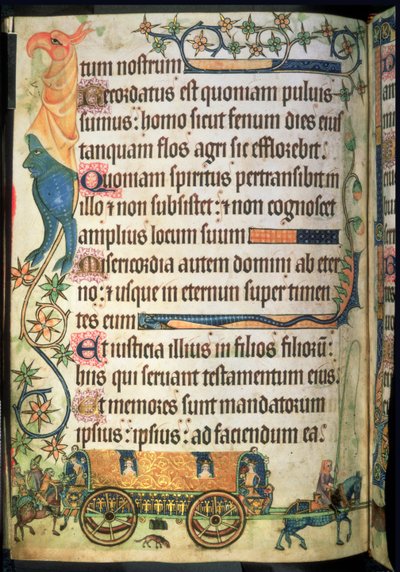 tum nostrum
Recordatus est quoniam puluis
sumus: homo sicut fenum dies eius
tanquam flos agri sic efflorebit.
Quoniam spiritus pertransibit in
illo ⁊ non subsistet: ⁊ non cognoscet
amplius locum suum
Misericordia autem domini ab eter
no: ⁊ usque in eternum super timen
tes eum
Et iusticia illius in filios filiorū:
hiis qui seruant testamentum eius.
Et memores sunt mandatorum
ipsius: ipsius: ad faciendum ea.